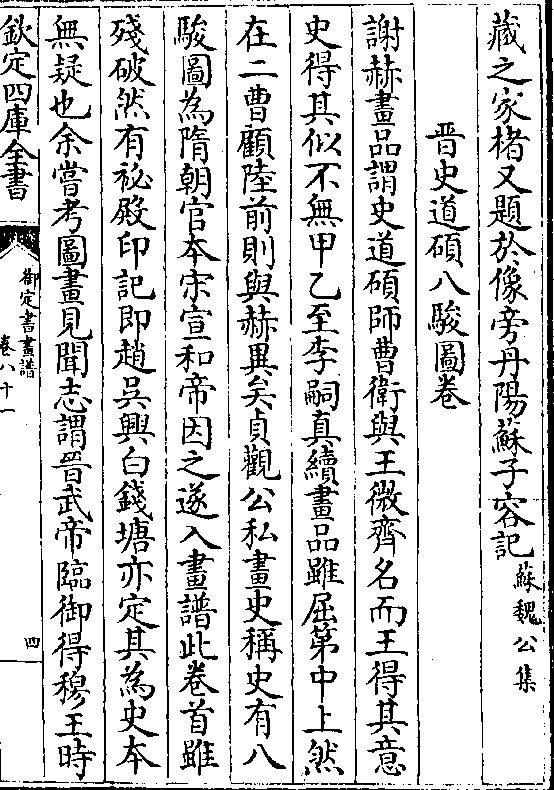 藏之家楮又題於像旁丹陽蘇子容記蘇魏公集
晋史道碩八駿圖卷
謝赫畫品謂史道碩師曹衛與王微齊名而王得其意
史得其似不無甲乙至李嗣真續畫品雖屈第中上然
在二曹顧陸前則與赫異矣貞觀公私畫史稱史有八
駿圖為隋朝官本宋宣和帝因之遂入畫譜此卷首雖
殘破然有祕殿印記即趙吳興白錢塘亦定其為史本
無疑也余嘗考圖畫見聞志謂晉武帝臨御得穆王時
欽定四庫全書
御定書畫譜
卷八十一
四